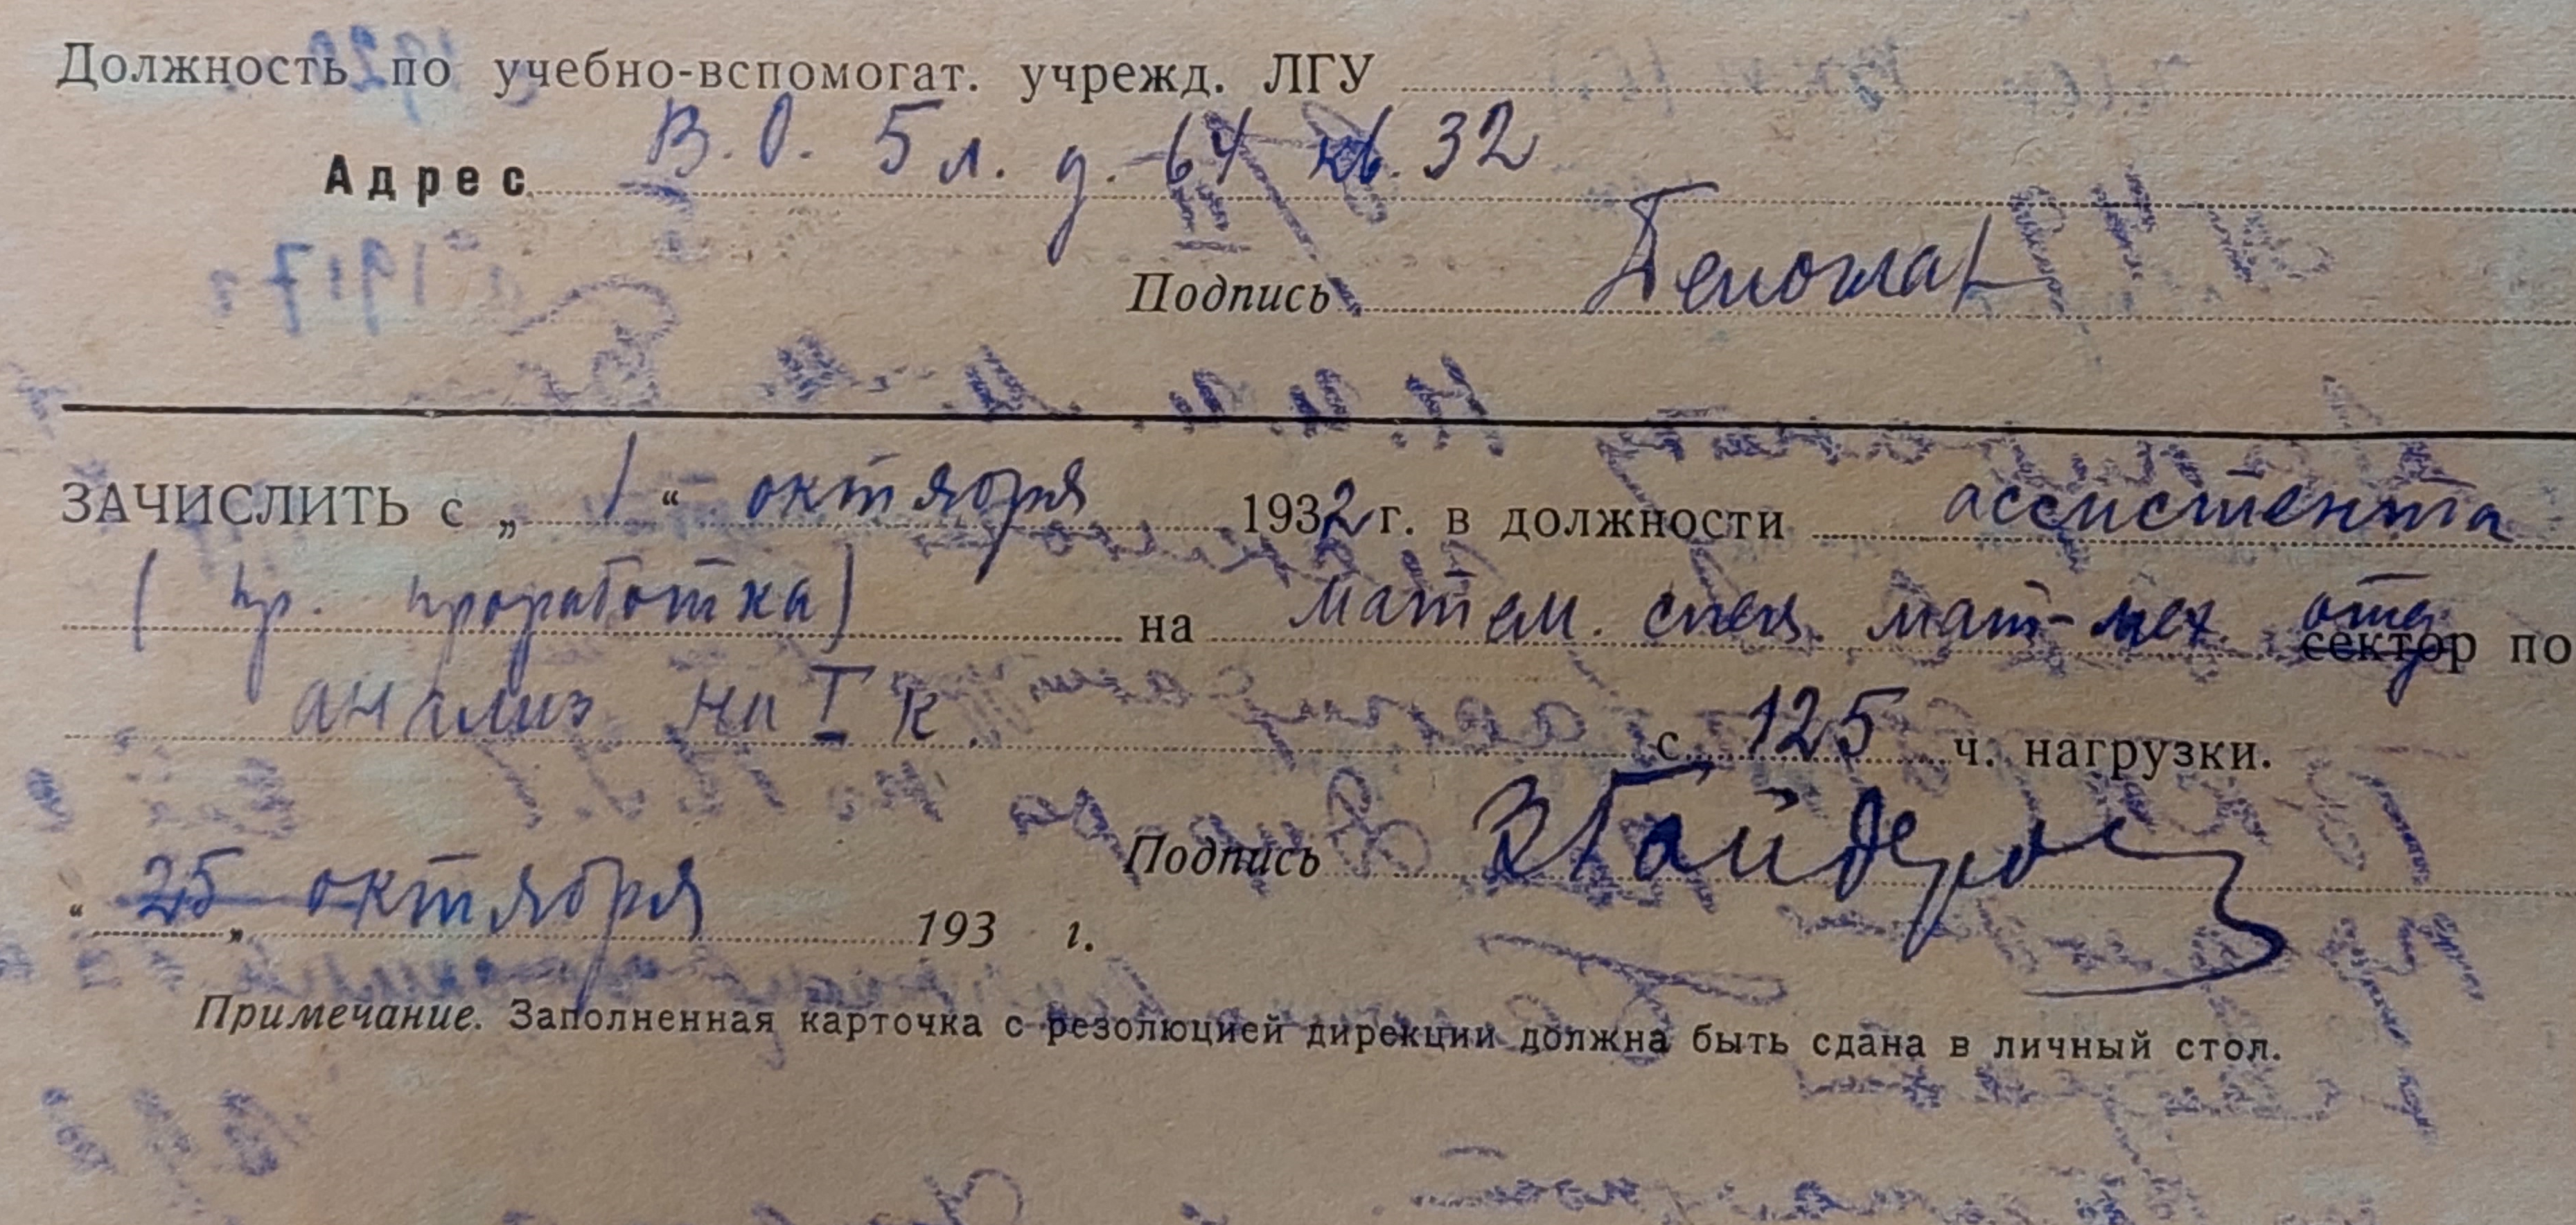 Должность по учебно-вспомогат. учрежд. ЛГУ
Адрес В. О. 5 л. д. 64 кв. 32
Подпись
ЗАЧИСЛИТЬ с „ 1 “ октября 1932 г. в должности ассистента
( пр. проработка) на матем. спец. мат-мех. отд сектор по
анализ на I к. с 125 ч. нагрузки.
Подпись
“ 25 „ октября 193 г.
Примечание. Заполненная карточка с резолюцией дирекции должна быть сдана в личный стол.